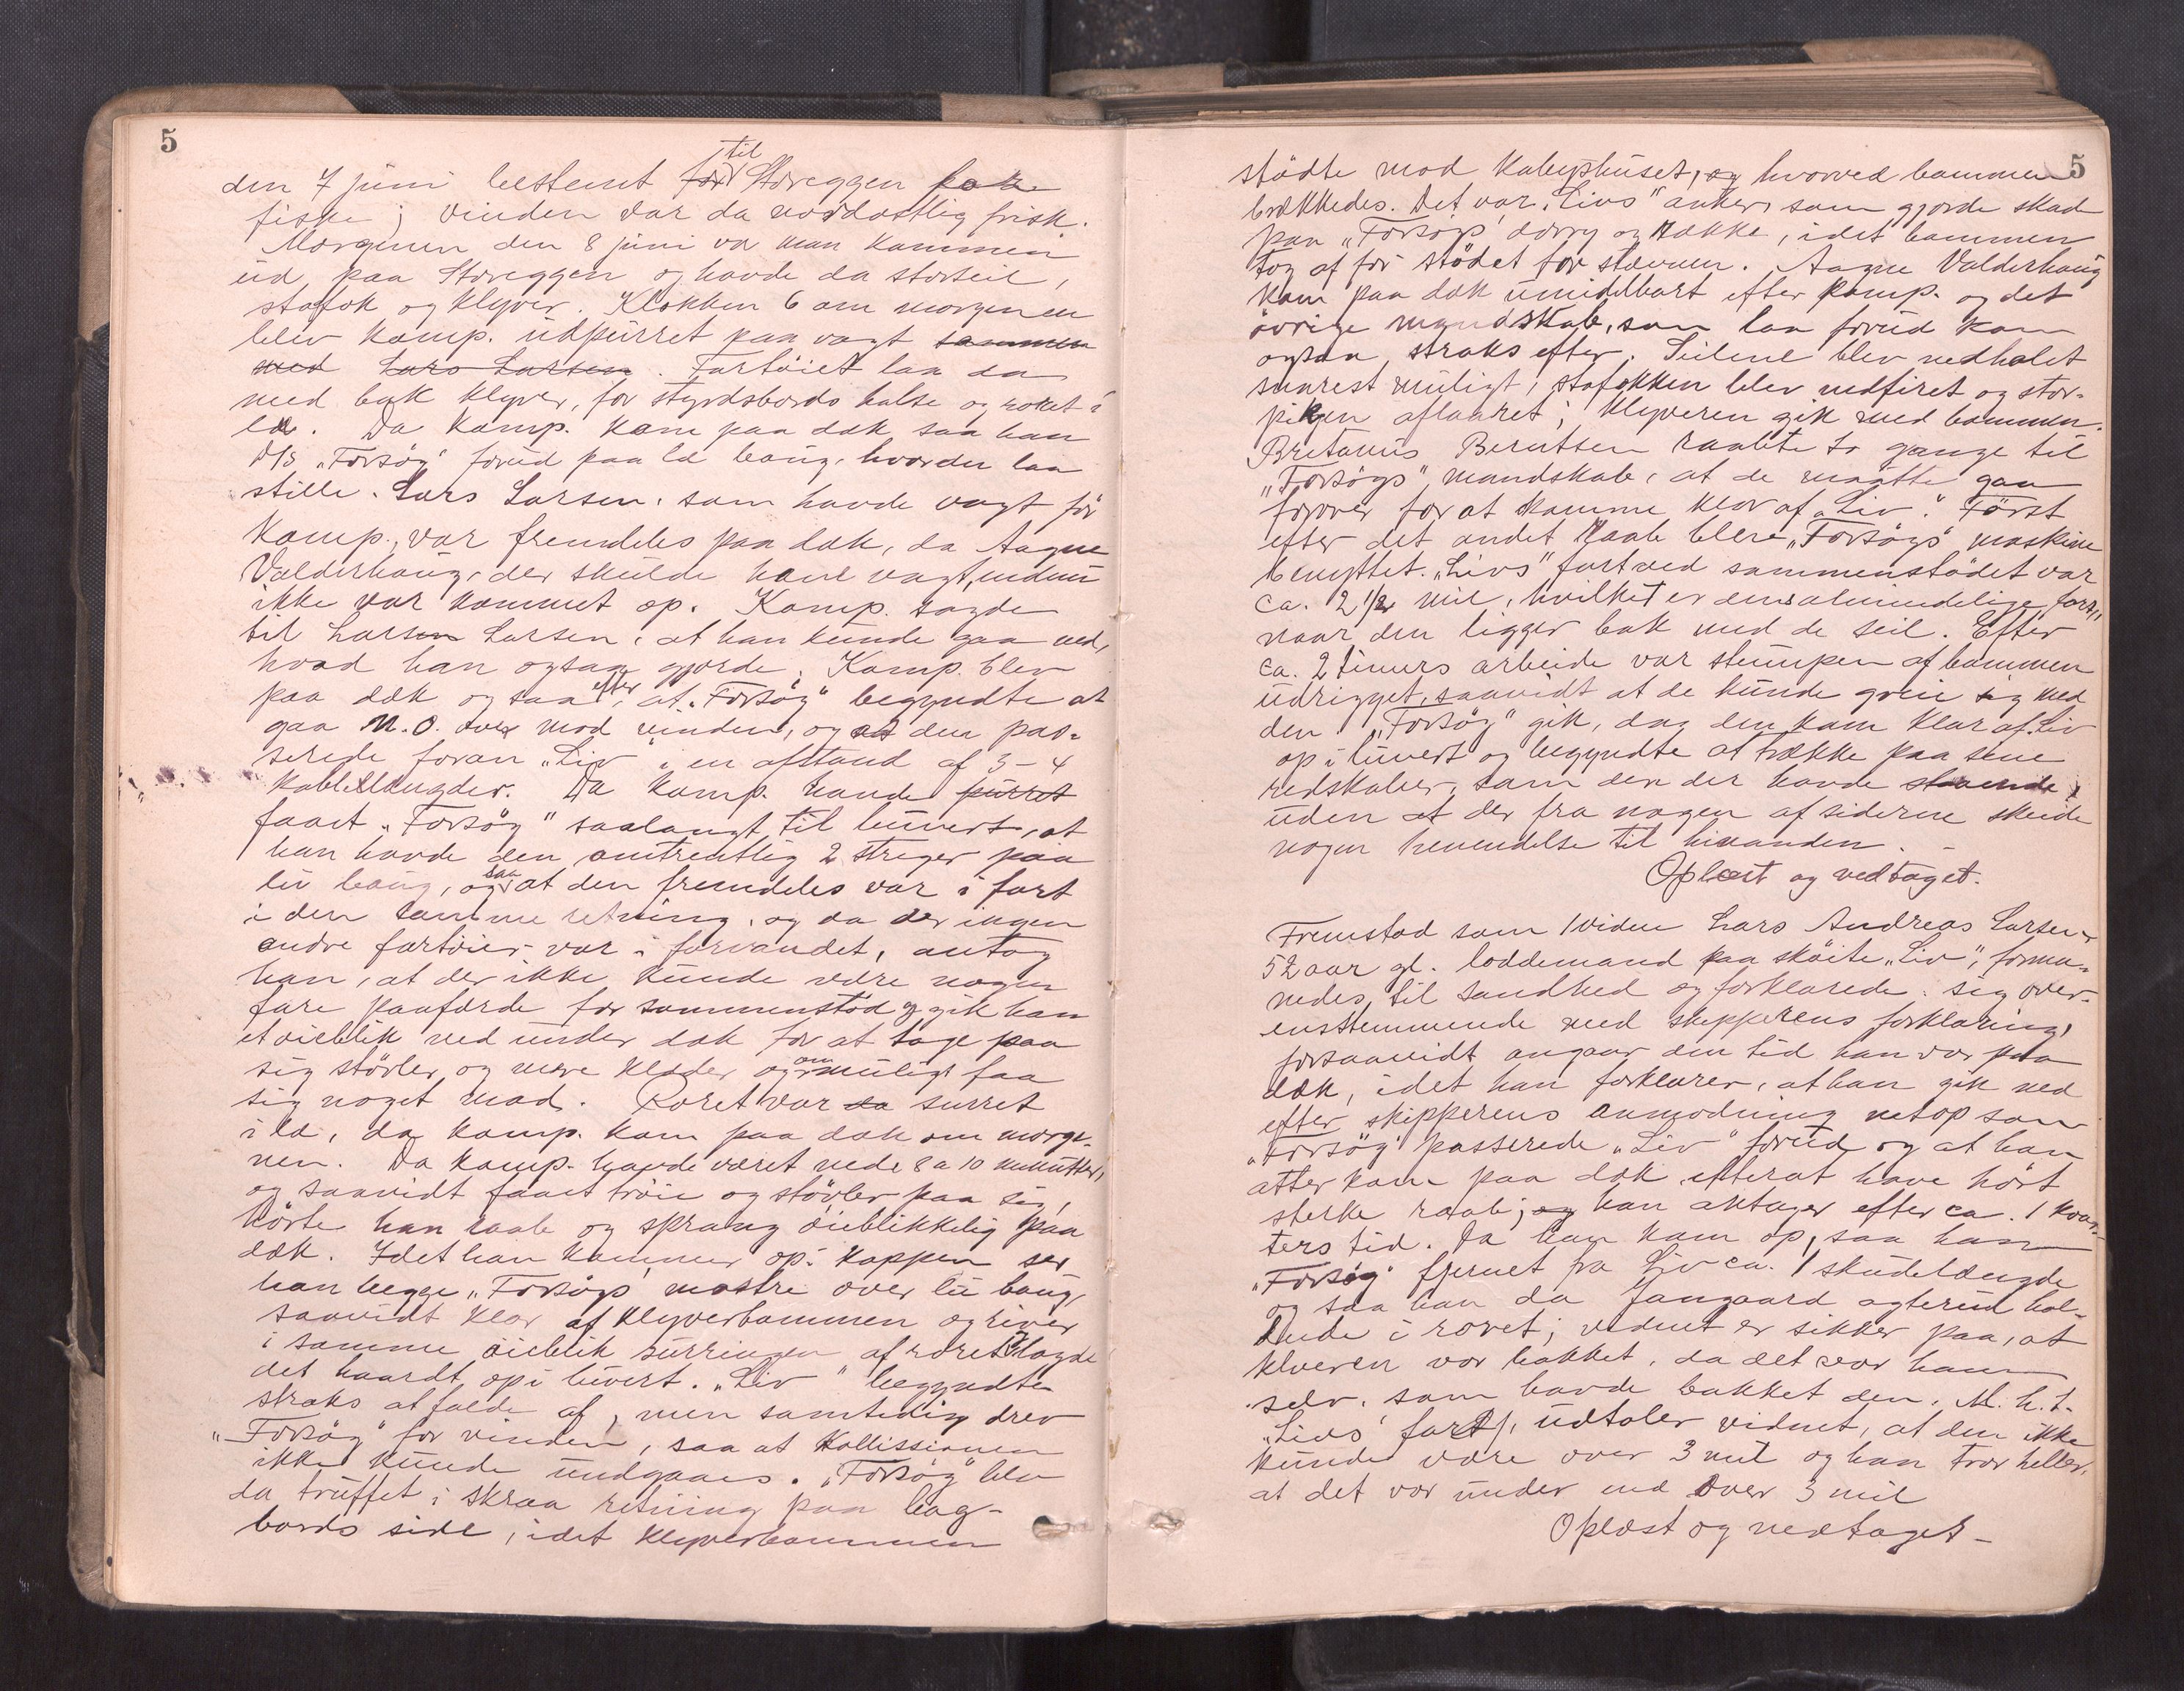 5
den 7 juni bestemt for til Storeggen paa
fiske; vinden var da nordostlig frisk.
Morgenen den 8 juni va man kommen
ud paa Storeggen og havde da storseil,
stafok og klyver. Klokken 6 om morgenen
blev komp. udpurret paa vagt sammen
med Lars Larsen. Fartöiet laa da
med bak klyver, for styrdsbords halse og roret i
læ. Da komp. kom paa dæk saa han
D/S "Forsög" forud paa læ boug, hvor den laa
stille. Lars Larsen, som havde vagt för
komp., var fremdeles paa dæk, da Aagne
Valderhaug, der skulde have vagt, endnu
ikke var kommet op. Komp. sagde
til Larsen Larsen, at han kunde gaa ned,
hvad han ogsaa gjorde. Komp. blev
paa dæk og saa efter, at "Forsög" begyndte at
gaa N.O. over mod vinden, og at den pas-
serede foran "Liv" i en afstand af 3-4
kabellængder. Da komp. havde purret
faaet "Forsög" saalangt til luvert, at
han havde den omtrentlig 2 streger paa
luv boug, og saa at den fremdeles var i fart
i den samme retning, og da der ingen
andre fartöier var i farvandet, antog
han, at der ikke kunde være nogen
fare paafærde for sammenstöd og gik han
et öieblik ned under dæk for at tage paa
sig stövler og mere klæder og om muligt faa
sig noget mad. Roret var da surret
i læ, da komp. kom paa dæk om morge-
nen. Da komp. havde været nede 8 a 10 minutter,
og saavidt faaet tröie og stövler paa sig,
hörte han raab og sprang öieblikkelig paa
dæk. Idet han kommer op i kappen ser
han begge "Forsögs" mastre over læ boug,
saavidt klar af klyverbommen og river
i samme öieblik surringen af roret & lagde
det haardt op i luvert. "Liv" begyndte
straks at falde af, men samtidig drev
"Forsög" for vinden, saa at Kollissionen
ikke kunde undgaaes. "Forsög" blev
da truffet i skraa retning paa bag-
bords side, idet klyverbommen
5
stödte mod kabyshuset, og hvorved bommen
brækkedes. Det var "Livs" anker, som gjorde skade
paa "Forsögs" dorry og række, idet bommen
tog af for stödet for stævnen. Aagne Valderhaug
kom paa dæk umidelbart efter komp. og det
övrige mandskab, som laa forud kom
ogsaa straks efter. Seilene blev nedhalet
snarest muligt, stafokken blev nedfiret og stor-
piken aflaaret; klyveren gik med bommen.
Bretanus Berntsen raabte to gange til
"Forsögs" mandskab, at de maatte gaa
forover for at komme klar af "Liv". Först
efter det andet raab blev "Forsögs" maskine
benyttet. "Livs" fart ved sammenstödet var
ca. 2 1/2 mil, hvilket er dens almindelige fart,
naar den ligger bak med de seil. Efter
ca. 2 timers arbeide var stumpen af bommen
udrigget, saavidt at de kunde greie sig med
den. "Forsög" gik, da den kom klar af Liv
op i luvert og begyndte at trække paa sine
redskaber, som den der havde staaende,
uden at der fra nogen af siderne skede
nogen henvendelse til hinanden. -
Oplæst og vedtaget.
Fremstod som 1 viden Lars Andreas Larsen,
52 aar gl. loddemand paa sköite "Liv", forma-
nedes til sandhed og forklarede: sig over-
ensstemmende med skipperens forklaring,
forsaavidt angaar den tid han var paa
dæk, idet han forklarer, at han gik ned
efter skipperens anmodning netop som
"Forsög" passerede "Liv" forud og at han
atter kom paa dæk efterat have hört
sterke raab; og han antager efter ca. 1 kvar-
ters tid. Da han kom op, saa han
"Forsög" fjernet fra Liv ca. 1 skudelængde
og saa han da Jangaard agterud hol-
dende i roret; vidnet er sikker paa, at
klveren var bakket, da det var ham
selv, som havde bakket den. M. h. t.
"Livs" fart, udtaler vidnet, at den ikke
kunde være over 3 mil og han tror heller,
at det var under end over 3 mil
Oplæst og vedtaget -